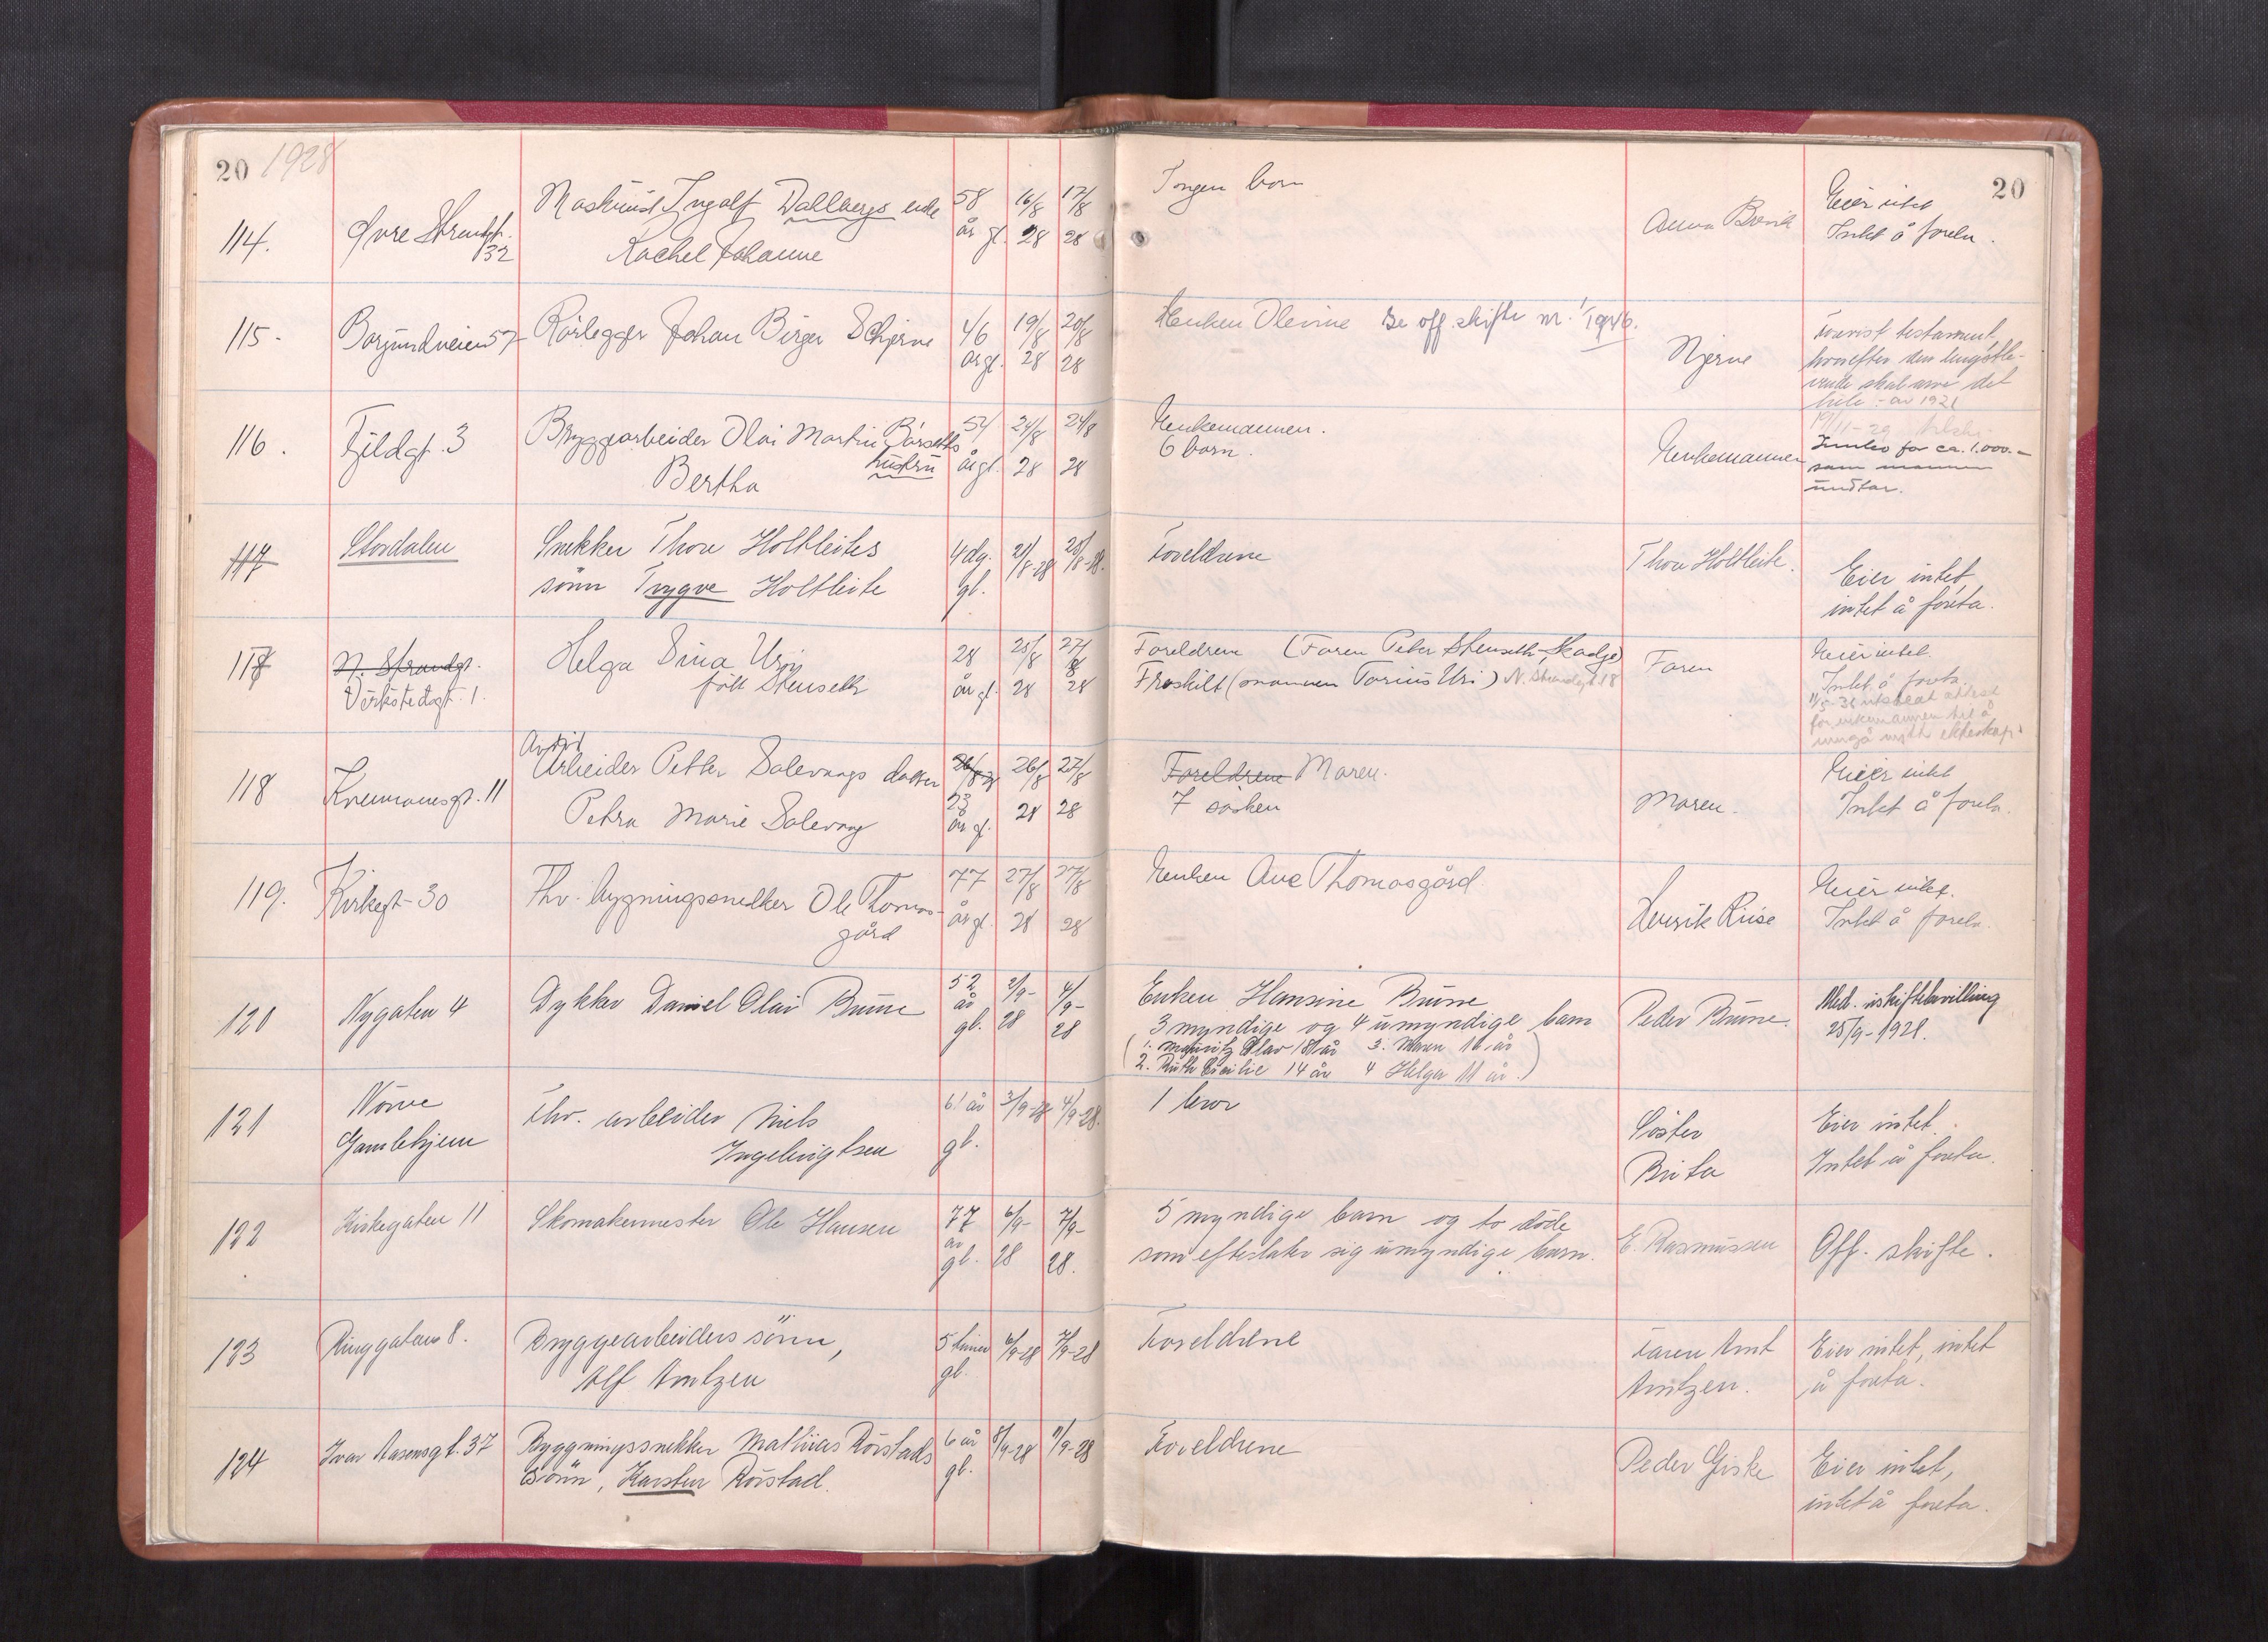 20 1928
20
114. Øvre Strandgt. 32 Maskinist Ingolf Dahlbergs enke 58 16/8 17/8 Ingen barn Eier intet
Rachel Johanne år gl. 28 28 Anna Brevik Intet å foreta.
115. Borgundveien 57 Rörlegger Johan Birger Schjerve 46 19/8 20/8 Enken Olevine Se off. skifte nr. 1/1946.
år gl. 28 28 Njerve
testament,
hvorefter den lengstle-
vende skal arve det
hele - av 1921
116. Fjeldgt. 3 Bryggearbeider Olai Martin Bårseths 54 24/8 24/8 Enkemannen.
hustru år gl. 28 28 6 barn. Enkemannen
Bertha
Innbo for ca. 1.000.-
som mannen
undtar.
117 Stordalen Snekker Thore Holtleites 4 dg. 21/8-28 25/8-28. Foreldrene Thore Holtleite.
sönn Trygve Holtleite gl.
Eier intet,
intet å foreta.
117 N. Strandgt. Helga Sina Uri 28 25/8 27/8 Foreldrene (Faren Peter Stenseth, Skodje) Faren Eier intet.
Verkstedgt. 1. født Stenseth år gl. 28 28 Fraskilt (mannen Torius Uri) N. Strandgt. 18 Intet å foreta.
11/5-36 utstedt attest
for enkemannen til å
inngå nytt ekteskap.
Avdöd
118 Kremmergt. 11 Arbeider Petter Salevaags datter 26/8 28 26/8 27/8 Foreldrene Moren. Eier intet
Petra Marie Salevaag 23 år gl. 28 28 7 sösken Moren. Intet å foreta.
119. Kirkegt. 30 Fhv. bygningssnedker Ole Thomas- 77 27/8 27/8 Enken Ane Thomasgård Eier intet.
gård år gl. 28 28 Henrik Riise Intet å foreta.
120 Nygaten 4 Dykker Daniel Olai Brune 52 år gl. 2/9-28 4/9-28 Enken Hansine Brune Peder Brune. Med. uskiftebevilling
3 myndige og 4 umyndige barn 25/9-1928.
(1. Mauritz Olav 18 år 3. Maren 11 år
2. Ruth Cecilie 14 år 4 Helga 11 år.)
121 Nörve Fhv. arbeider Nils 61 år 3/9-28 4/9-28. 1 bror Söster Eier intet.
Gamlehjem Ingebrigtsen gl. Brita Intet å foreta.
122 Kirkegaten 11 Skomakermester Ole Hansen 77 år gl. 6/9-28 7/9-28. 5 myndige barn og to döde E. Rasmussen Off. skifte.
som efterlater sig umyndige barn.
123 Ringgaten 8. Bryggearbeiders sönn, 5 timer 6/9-28 7/9-28 Foreldrene Faren Arnt Eier intet, intet
Alf Arntzen gl. Arntzen. å foreta.
124 Ivar Aasensgt. 37 Byggningssnekker Mathias Rörstads 6 år 8/9-28 11/9-28 Foreldrene Peder Giske Eier intet,
sönn, Karsten Rörstad. gl. intet å foreta.